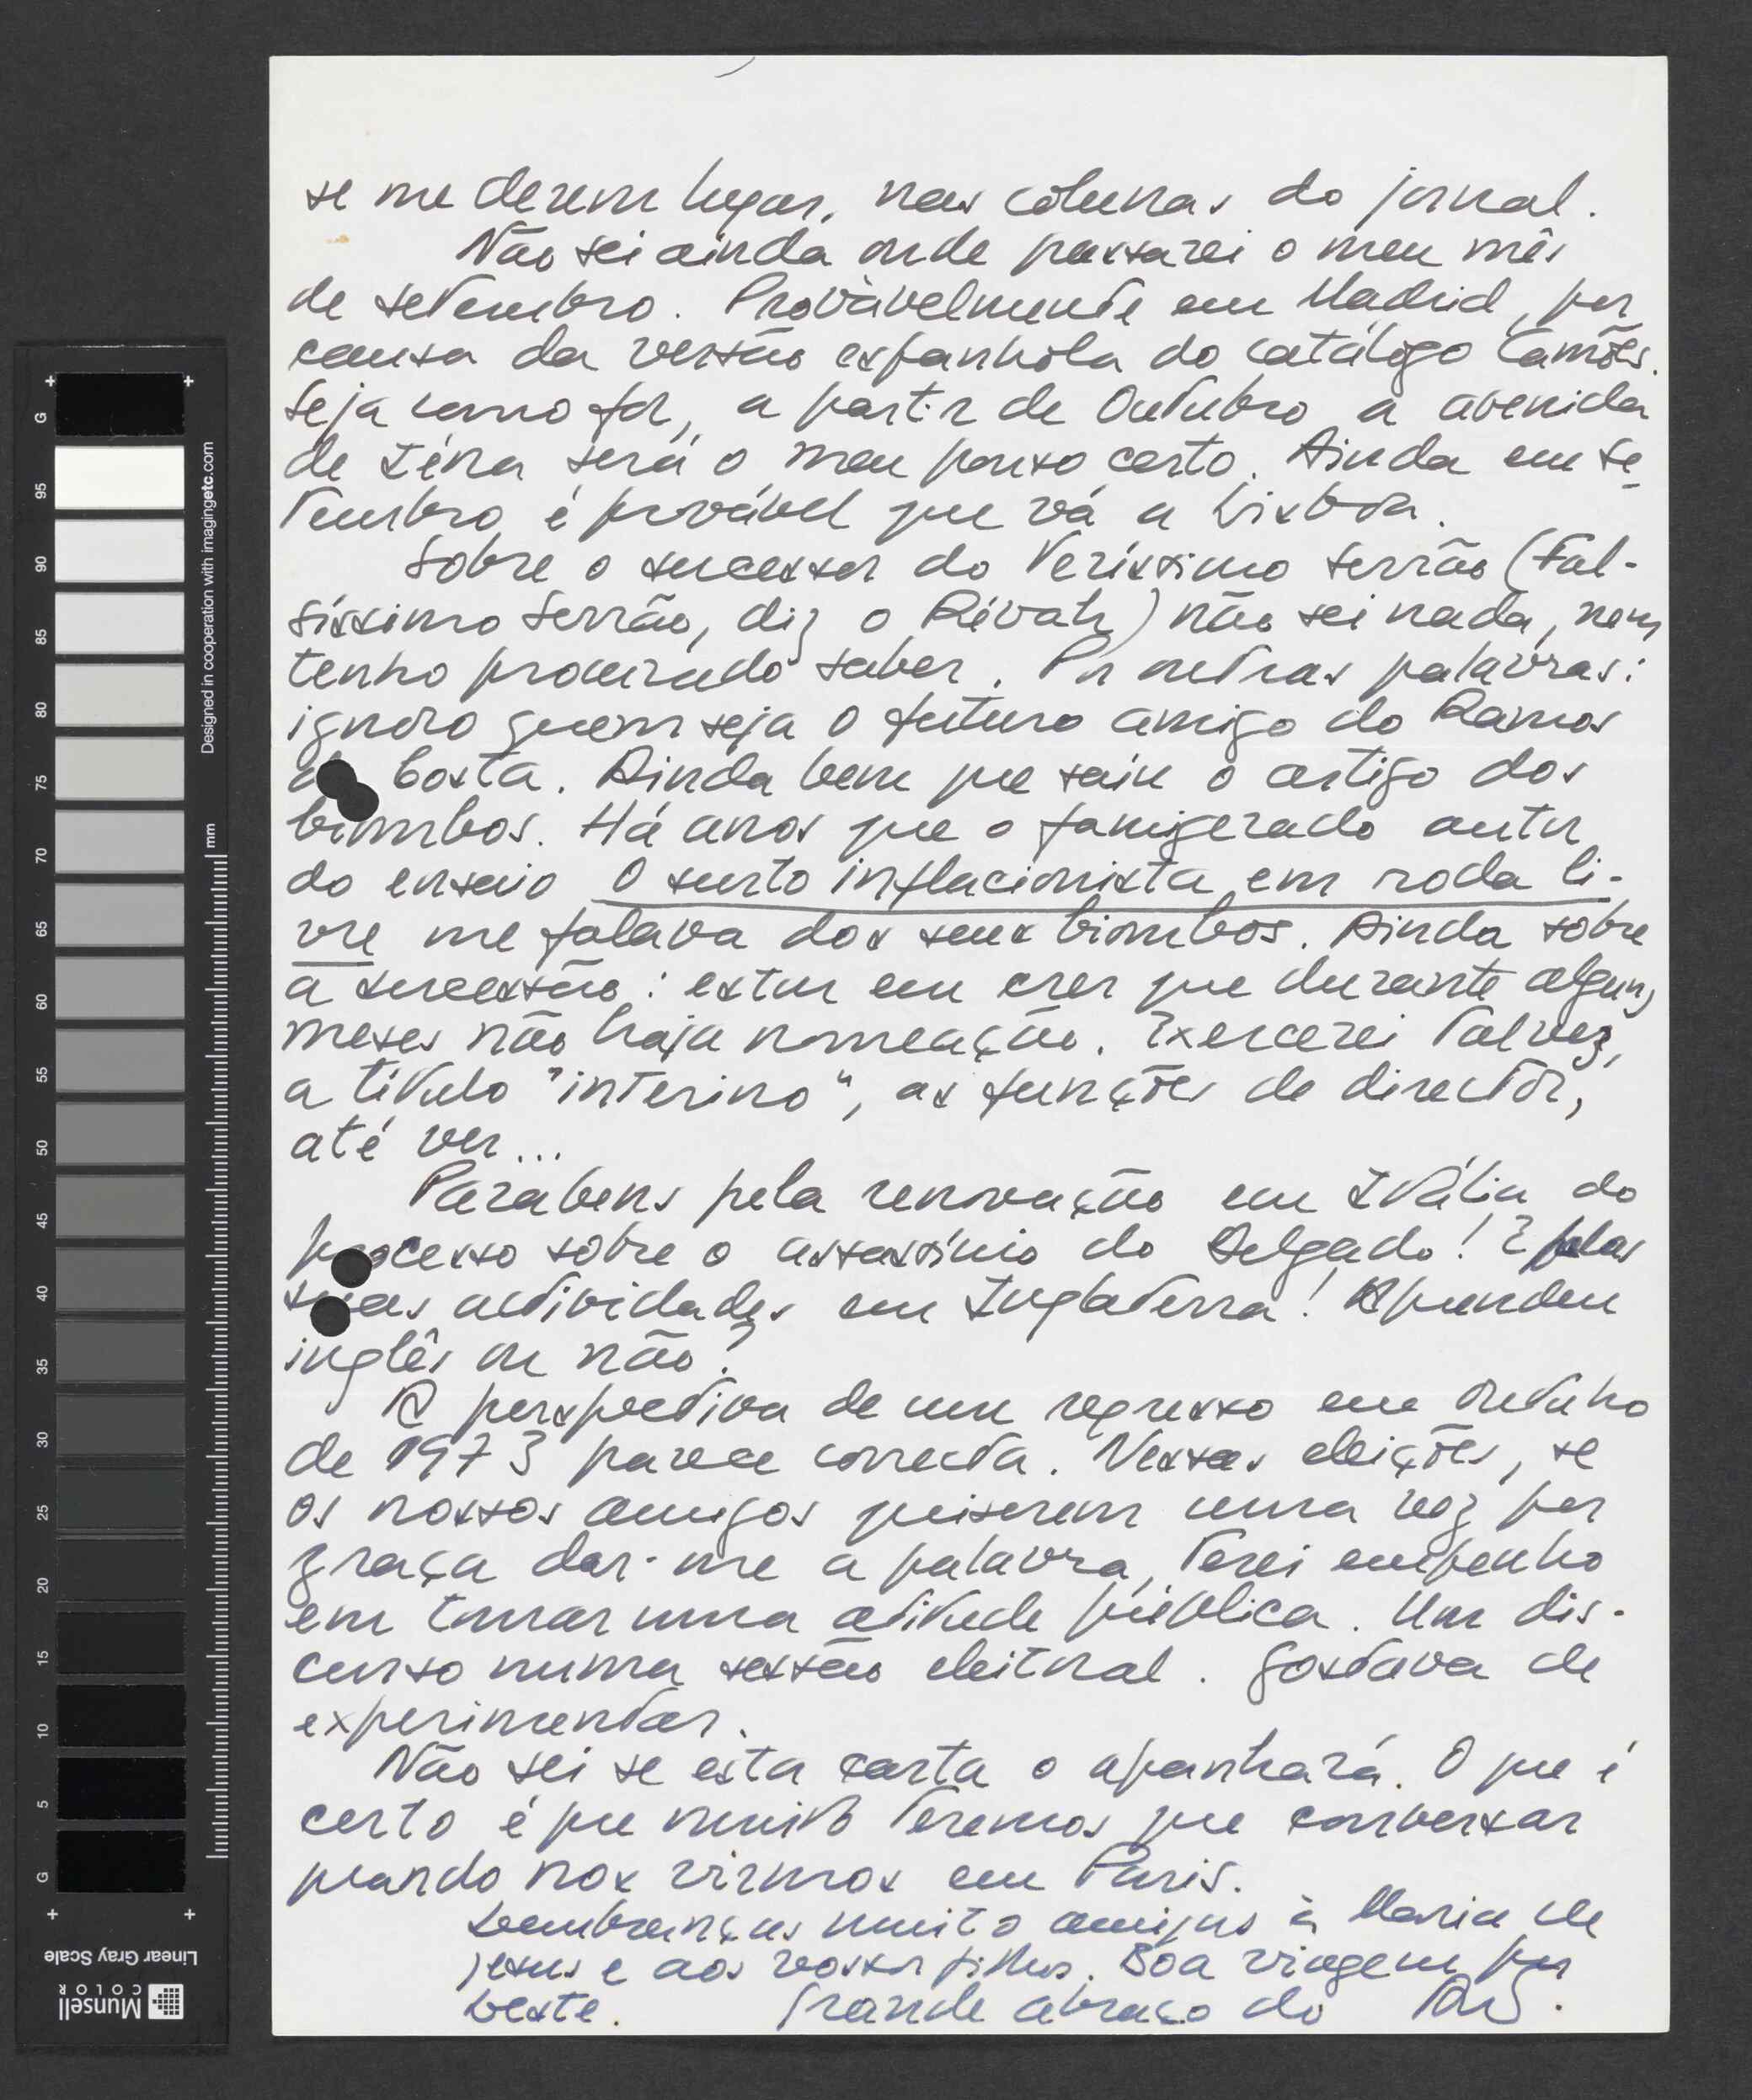 se me derem lugar, nas colunas do jornal.
Não sei ainda onde passarei o meu mês
de setembro. Provàvelmente em Madrid, por
causa da versão espanhola do catálogo Camões.
Seja como for, a partir de Outubro a avenida
de Iéna será o meu pouso certo. Ainda em se-
tembro é provável que vá a Lisboa.
Sobre o sucessor do Veríssimo Serrão (Fal-
síssimo Serrão, diz o Révah) não sei nada, nem
tenho procurado saber. Por outras palavras:
ignoro quem seja o futuro amigo do Ramos
da Costa. Ainda bem que saiu o artigo dos
bimbos. Há anos que o famigerado autor
do ensaio O surto inflacionista em roda li-
vre me falava dos seus bimbos. Ainda sobre
a sucessão: estou em crer que durante alguns
meses não haja nomeação. Exercerei talvez,
a título "interino", as funções de director,
até ver...
Parabens pela renovação em Itália do
processo sobre o assassínio do Delgado! E pelas
suas actividades em Inglaterra! Aprendeu
inglês ou não?
A perspectiva de um regresso em Outubro
de 1973 parece correcta. Nessas eleições, se
os nossos amigos quiserem uma vez por
graça dar-me a palavra, terei empenho
em tomar uma atitude pública. Um dis-
curso numa sessão eleitoral. Gostava de
experimentar.
Não sei se esta carta o apanhará. O que é
certo é que muito teremos que conversar
quando nos virmos em Paris.
Lembranças muito amigas à Maria de
Jesus e aos vossos filhos. Boa viagem por
Leste. Grande abraço do
G 95 90 85 80 75 70 65 60 55 50 45 40 35 30 25 20 15 10 5 G
Designed in cooperation with imagingetc.com
mm
Linear Gray Scale
Munsell
COLOR